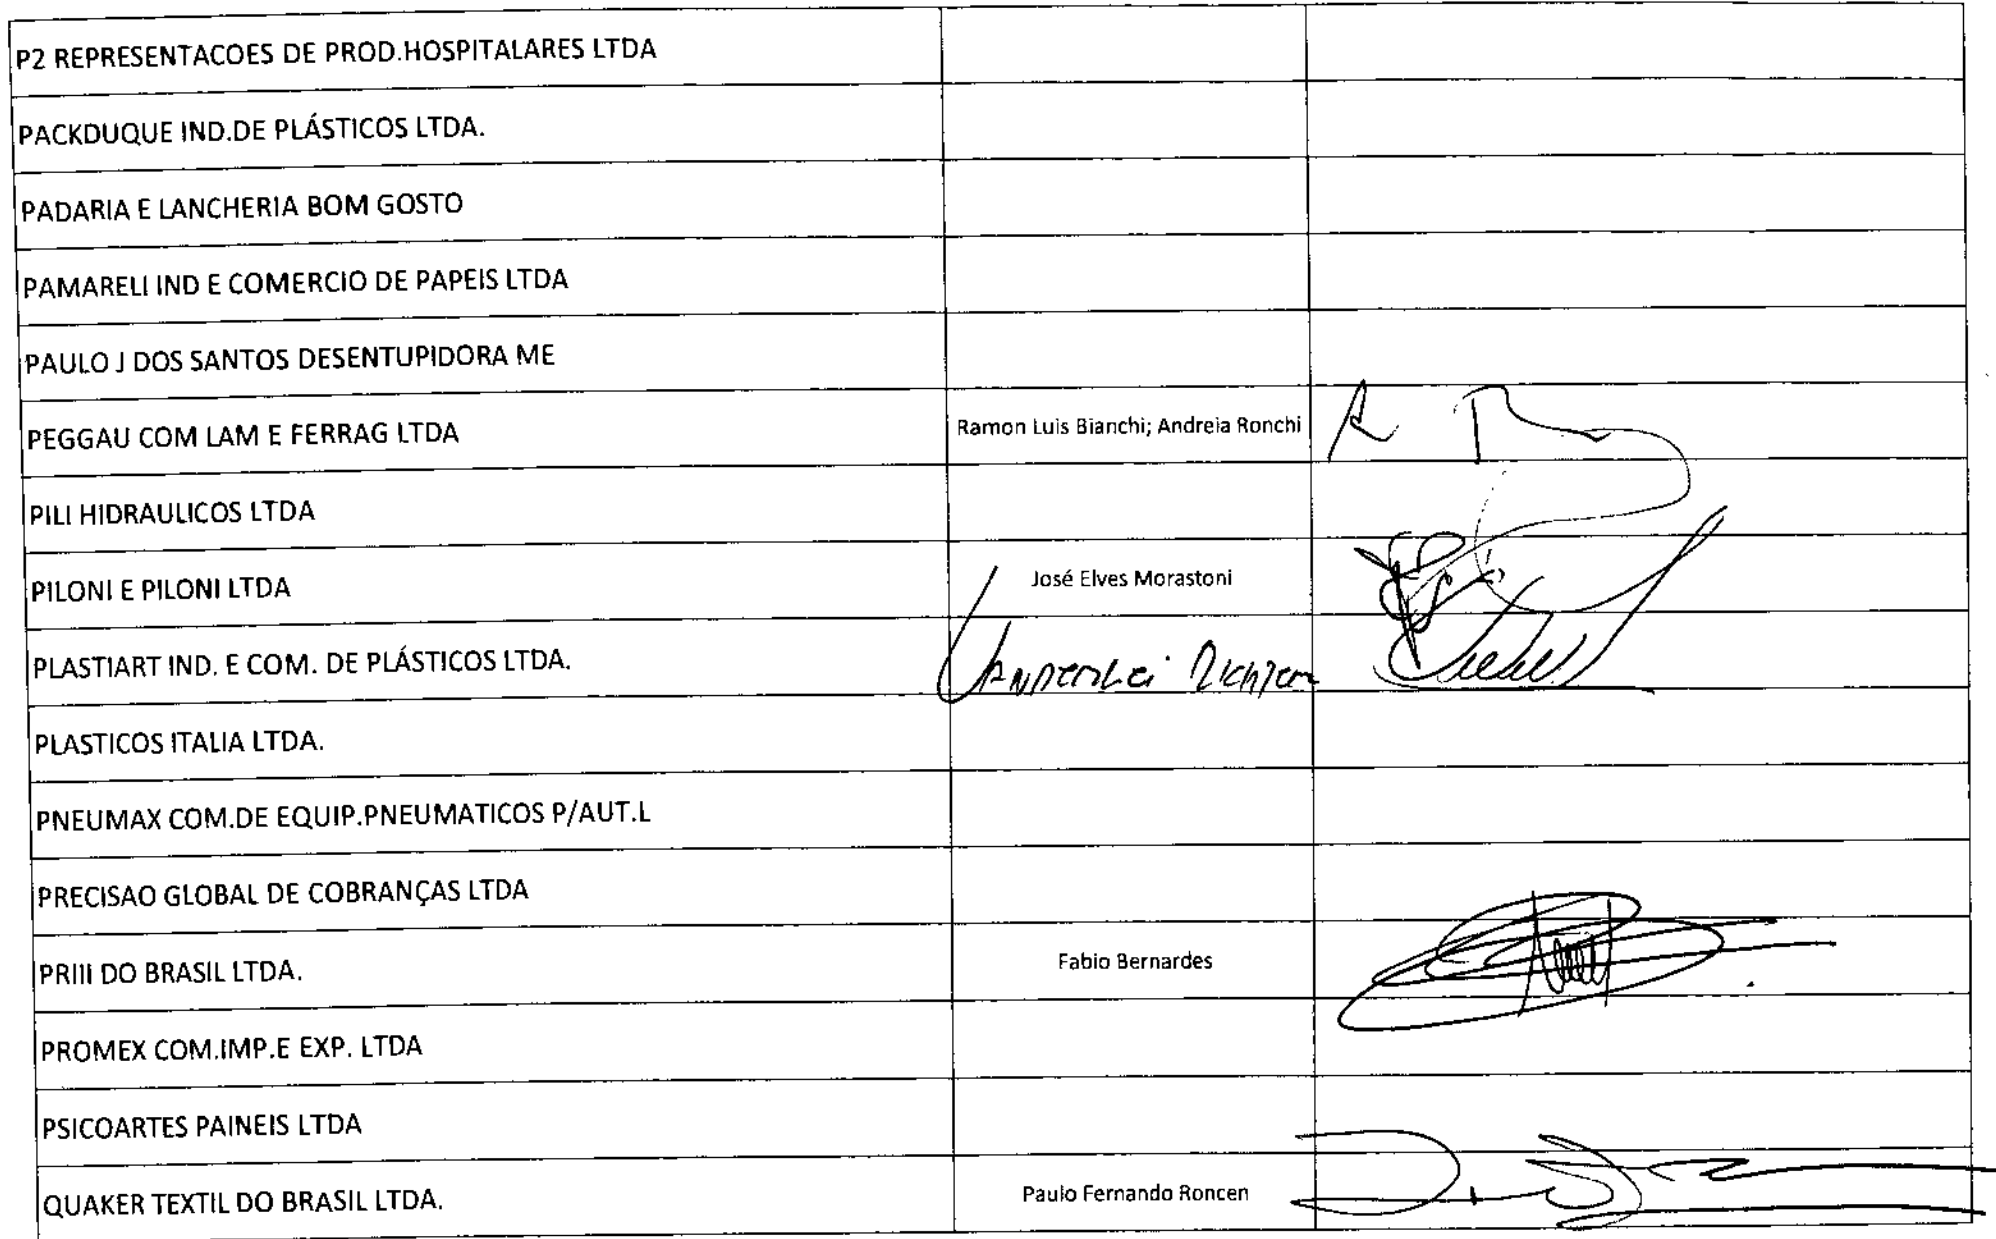 P2 REPRESENTACOES DE PROD.HOSPITALARES LTDA
PACKDUQUE IND.DE PLÁSTICOS LTDA.
PADARIA E LANCHERIA BOM GOSTO
PAMARELI IND E COMERCIO DE PAPEIS LTDA
PAULO J DOS SANTOS DESENTUPIDORA ME
PEGGAU COM LAM E FERRAG LTDA Ramon Luis Bianchi; Andreia Ronchi
PILI HIDRAULICOS LTDA
PILONI E PILONI LTDA José Elves Morastoni
PLASTIART IND. E COM. DE PLÁSTICOS LTDA. Vanderlei
PLASTICOS ITALIA LTDA.
PNEUMAX COM.DE EQUIP.PNEUMATICOS P/AUT.L
PRECISAO GLOBAL DE COBRANÇAS LTDA
PRIII DO BRASIL LTDA. Fabio Bernardes
PROMEX COM.IMP.E EXP. LTDA
PSICOARTES PAINEIS LTDA
QUAKER TEXTIL DO BRASIL LTDA. Paulo Fernando Roncen